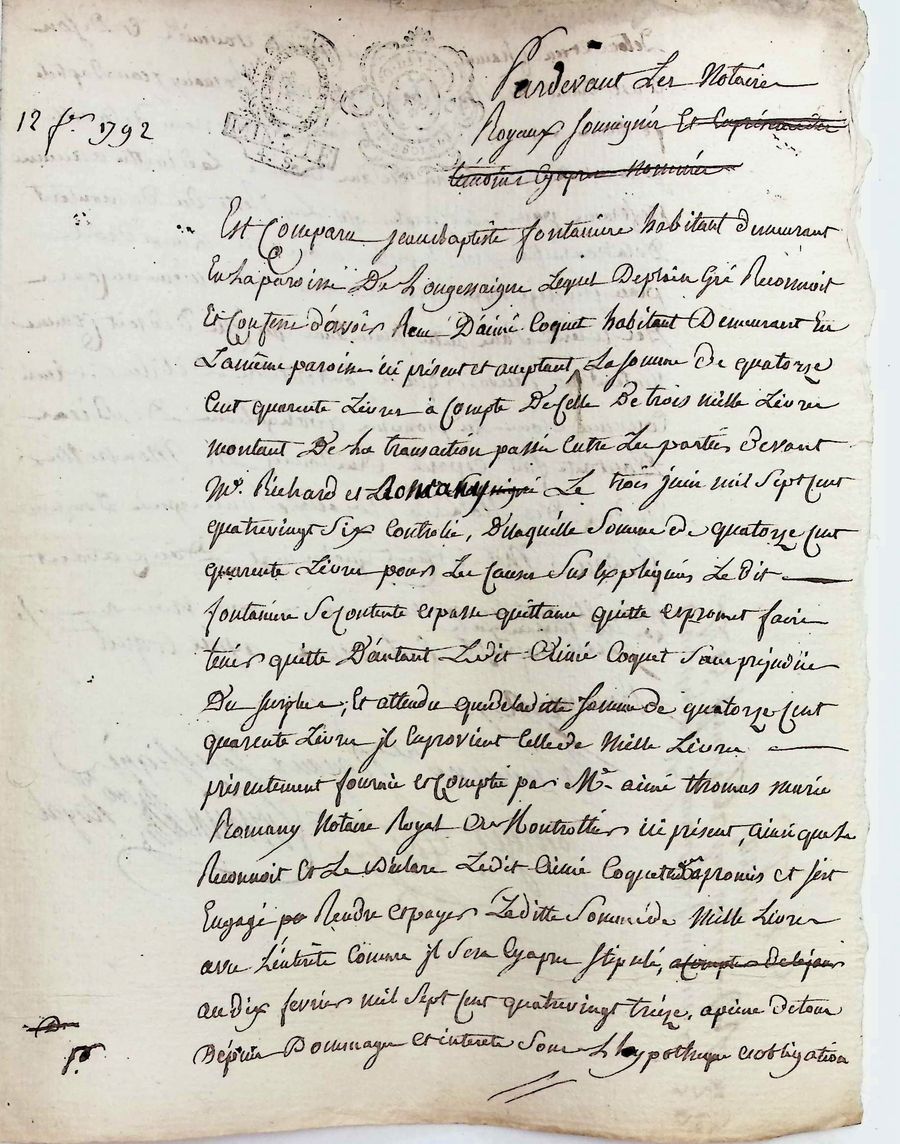 12 fer. 1792
Pardevant Les Notaire
Royaux soussignés Et En présence des
témoins Cyaprès Nommés
Est Comparu jean baptiste fontainire habitant demeurant
En La paroisse De Longessaigne Lequel De plain Gré Reconnoit
Et Confesse d'avoir Reçu D'aimé Coquet habitant Demeurant En
La même paroisse ici présent et aceptant La somme de quatorze
Cent quarente Livres à Compte De Celle De trois mille Livres
montant De La transaction passée Entre Les parties devant
Me. Richard et Romany Le trois juin mil Sept Cent
quatrevingt Six Controllée, De laquelle Somme de quatorze Cent
quarente Livres pour Les Causes Sus Expliqués Le dit
fontainire Se Contente et passe quittance quitte et promet faire
tenir quitte D'autant Ledit Aimé Coquet Sans préjudice
Du surplus ; Et attendu que de laditte somme de quatorze Cent
quarente Livres il En provient Celle de Mille Livres
présentement fournie et Comptée par Me. aimé thomas marie
Romany Notaire Royal De Montrottier ici présent, ainsi que Le
Reconnoit Et Le Déclare Ledit Aimé Coquet a promis et s'est
Engagé Rendre et payer Laditte Somme de Mille Livres
avec L'intérêts Comme il Sera Cyaprès Stipulé, a Compter de Ce jour
au dix fevrier mil Sept Cent quatrevingt treize, a peine de tous
Dépens Dommages et interets Sous L'hypotheque et obligation